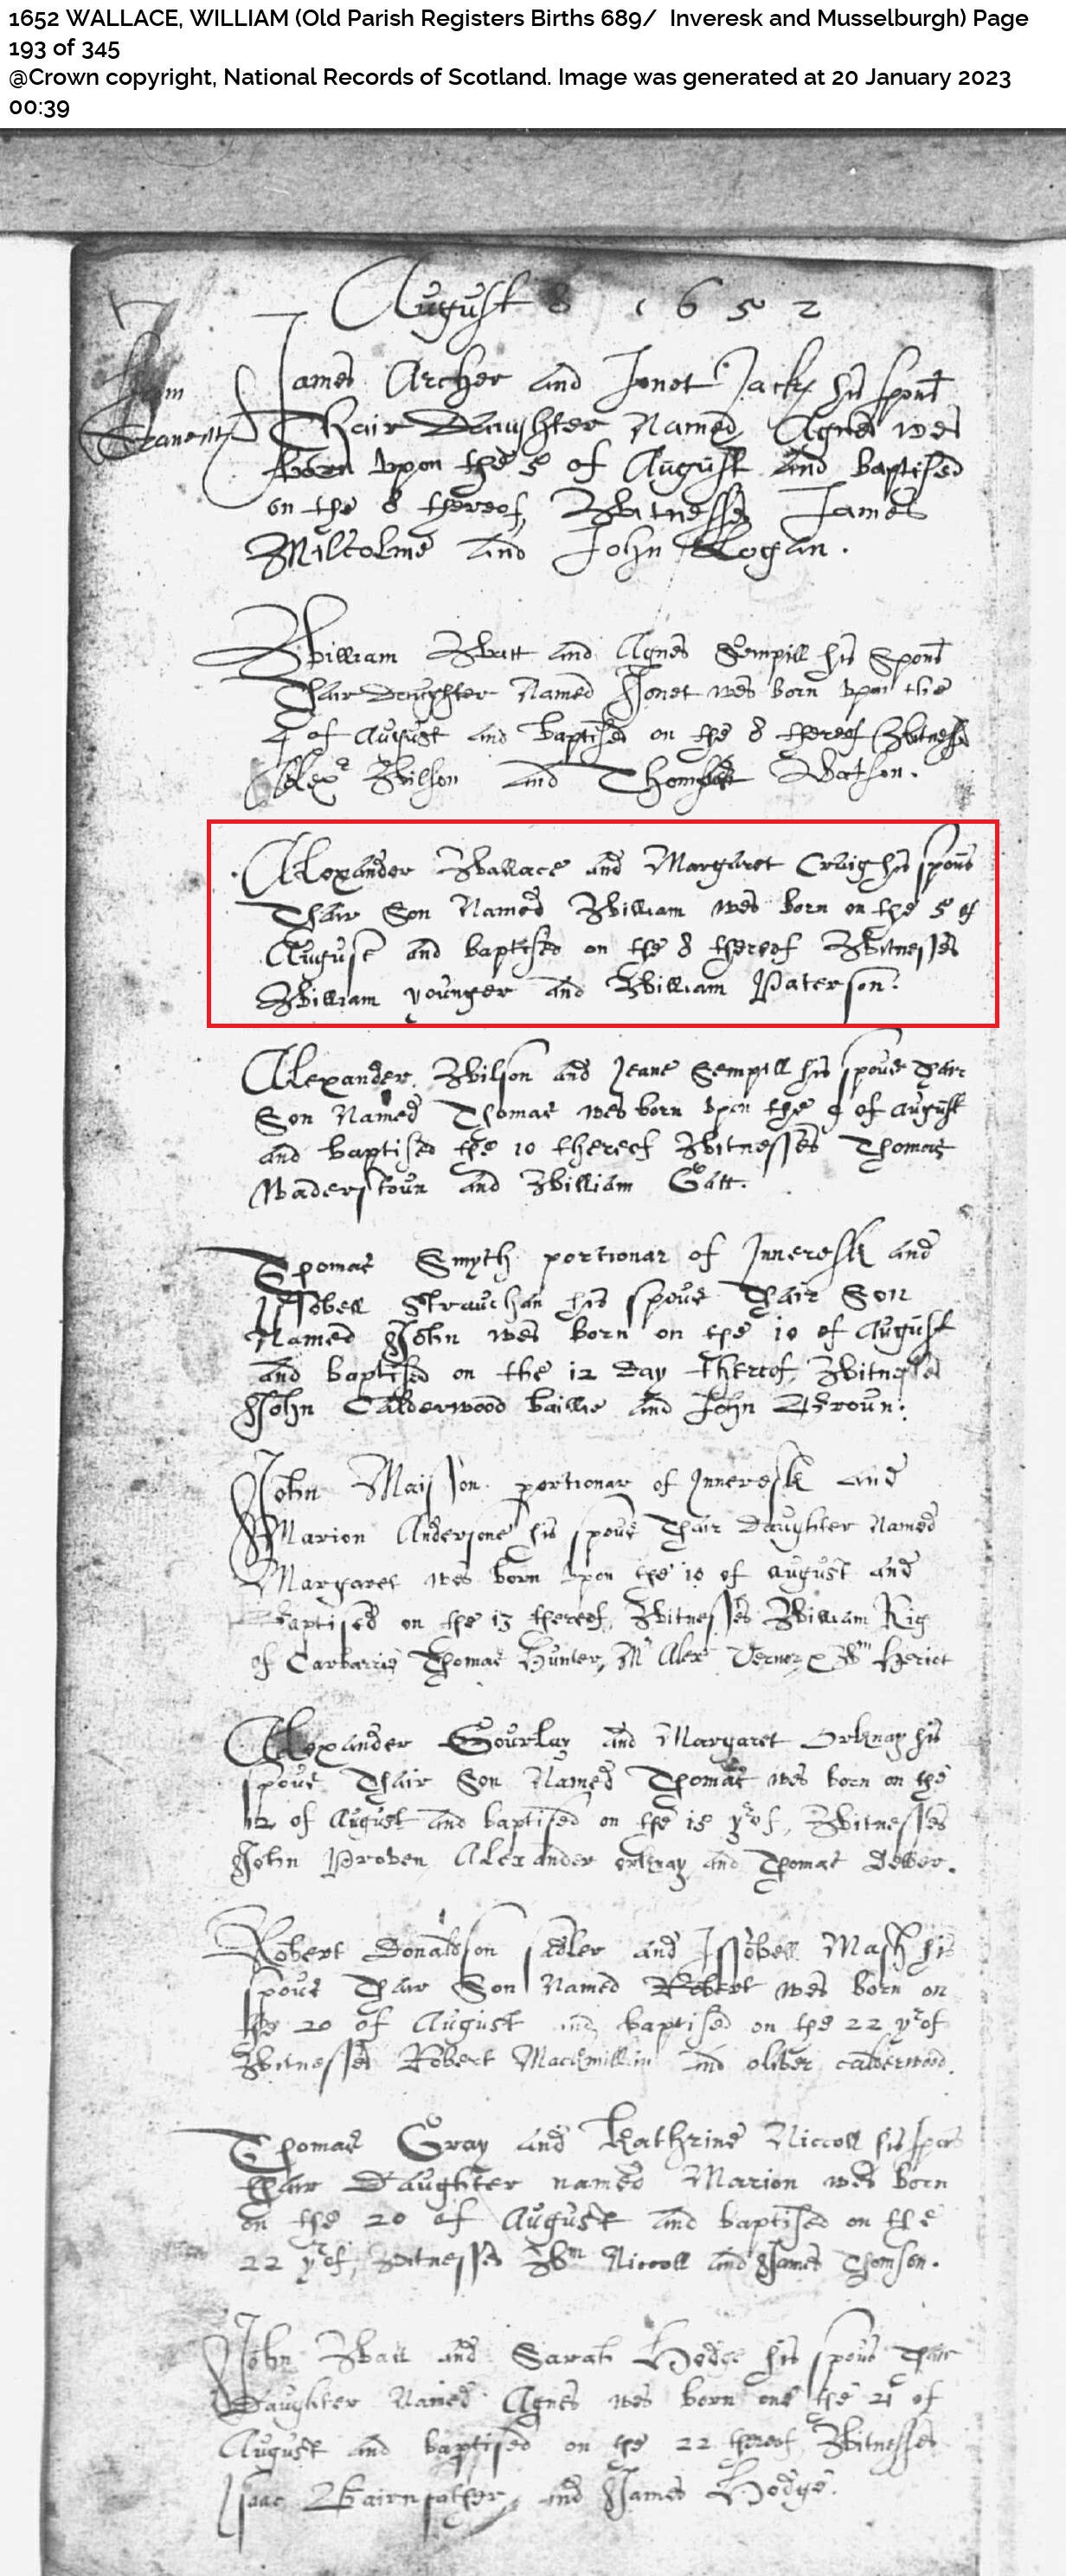 1652 WALLACE, WILLIAM (Old Parish Registers Births 689/ Inveresk and Musselburgh) Page
193 of 345
@Crown copyright, National Records of Scotland. Image was generated at 20 January 2023
00:39
August 8 1652
James Archer and Jonet Jack his
Thair Daughter Named Agnes wes
born upon the 5 of August and baptised
on the 8 thereof, Witnesses James
Milcolme and John Logan.
William Watt and Agnes Sempill his
Thair Daughter Named Jonet wes born upon the
4 of August and baptised on the 8 thereof Witnesses
Alexr Wilson and Thomas Watson.
Alexander Wallace and Margaret Craig his spous
Thair Son Named William wes born on the 5 of
August and baptised on the 8 thereof Witnesses
William younger and William Paterson.
Alexander Wilson and Jeane Sempill his spous Thair
Son Named Thomas wes born upon the 9 of August
and baptised the 10 thereof Witnesses Thomas
Waderstoun and William Gatt.
Thomas Smyth portionar of Inneresk and
Issobell Strauchan his spous Thair Son
Named John wes born on the 10 of August
and baptised on the 12 day thereof, Witnesses
John Calderwood baillie and John Broun.
John Maisson portionar of Inneresk and
Marion Andersone his spous Thair Daughter Named
Margaret wes born upon the 10 of august and
Baptised on the 13 thereof, Witnesses William Rig
of Carbarrie Thomas Hunter, Mr Alexr Vernor & Wm Heriot
Alexander Gourlay and Margaret Orknay his
spous Thair Son Named Thomas wes born on the
12 of August and baptised on the 15 yrof, Witnesses
John Proven Alexander orknay and Thomas
Robert Donaldson sadler and Issobell Mash his
spous Thair Son Named Robert wes born on
the 20 of August and baptised on the 22 yrof
Witnesses Robert Mackmillin and oliver calderwood.
Thomas Gray and Kathrine Niccoll his
thair Daughter named Marion wes born
on the 20 of August and baptised on the
22 yrof, Witnesses Wm Niccoll and James Thomson.
John and Sarah Hodge his spous Thair
Daughter Named Agnes wes born one the 21 of
August and baptised on the 22 thereof, Witnesses
Isaac Bairnfather, and James Hodge.